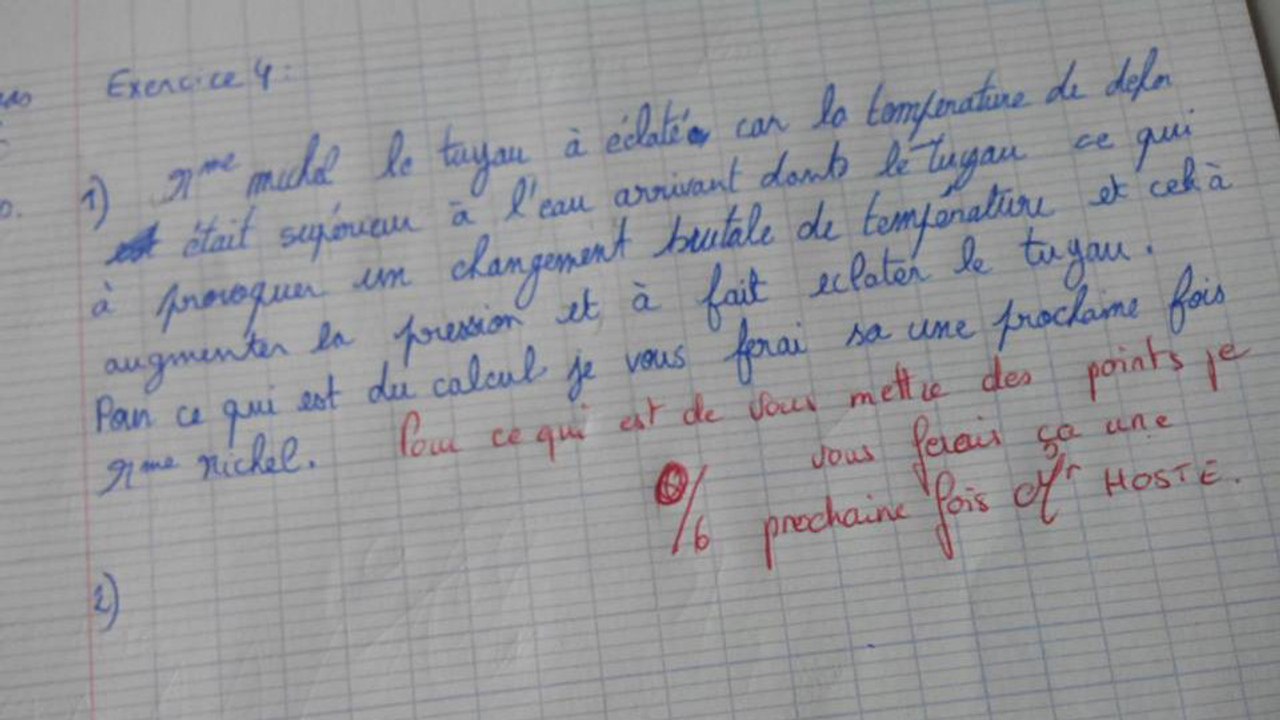 Exercice 4 :
1) Mme michel le tuyau à éclaté car la température de dehor
était supérieur à l'eau arrivant dants le tuyau ce qui
à provoquer un changement brutale de température et celà
augmenter la pression et à fait eclater le tuyau.
Pour ce qui est du calcul je vous ferai sa une prochaine fois
Mme Michel. Pour ce qui est de vous mettre des points je
vous ferais ça une
0/6 prochaine fois Mr HOSTE.
2)